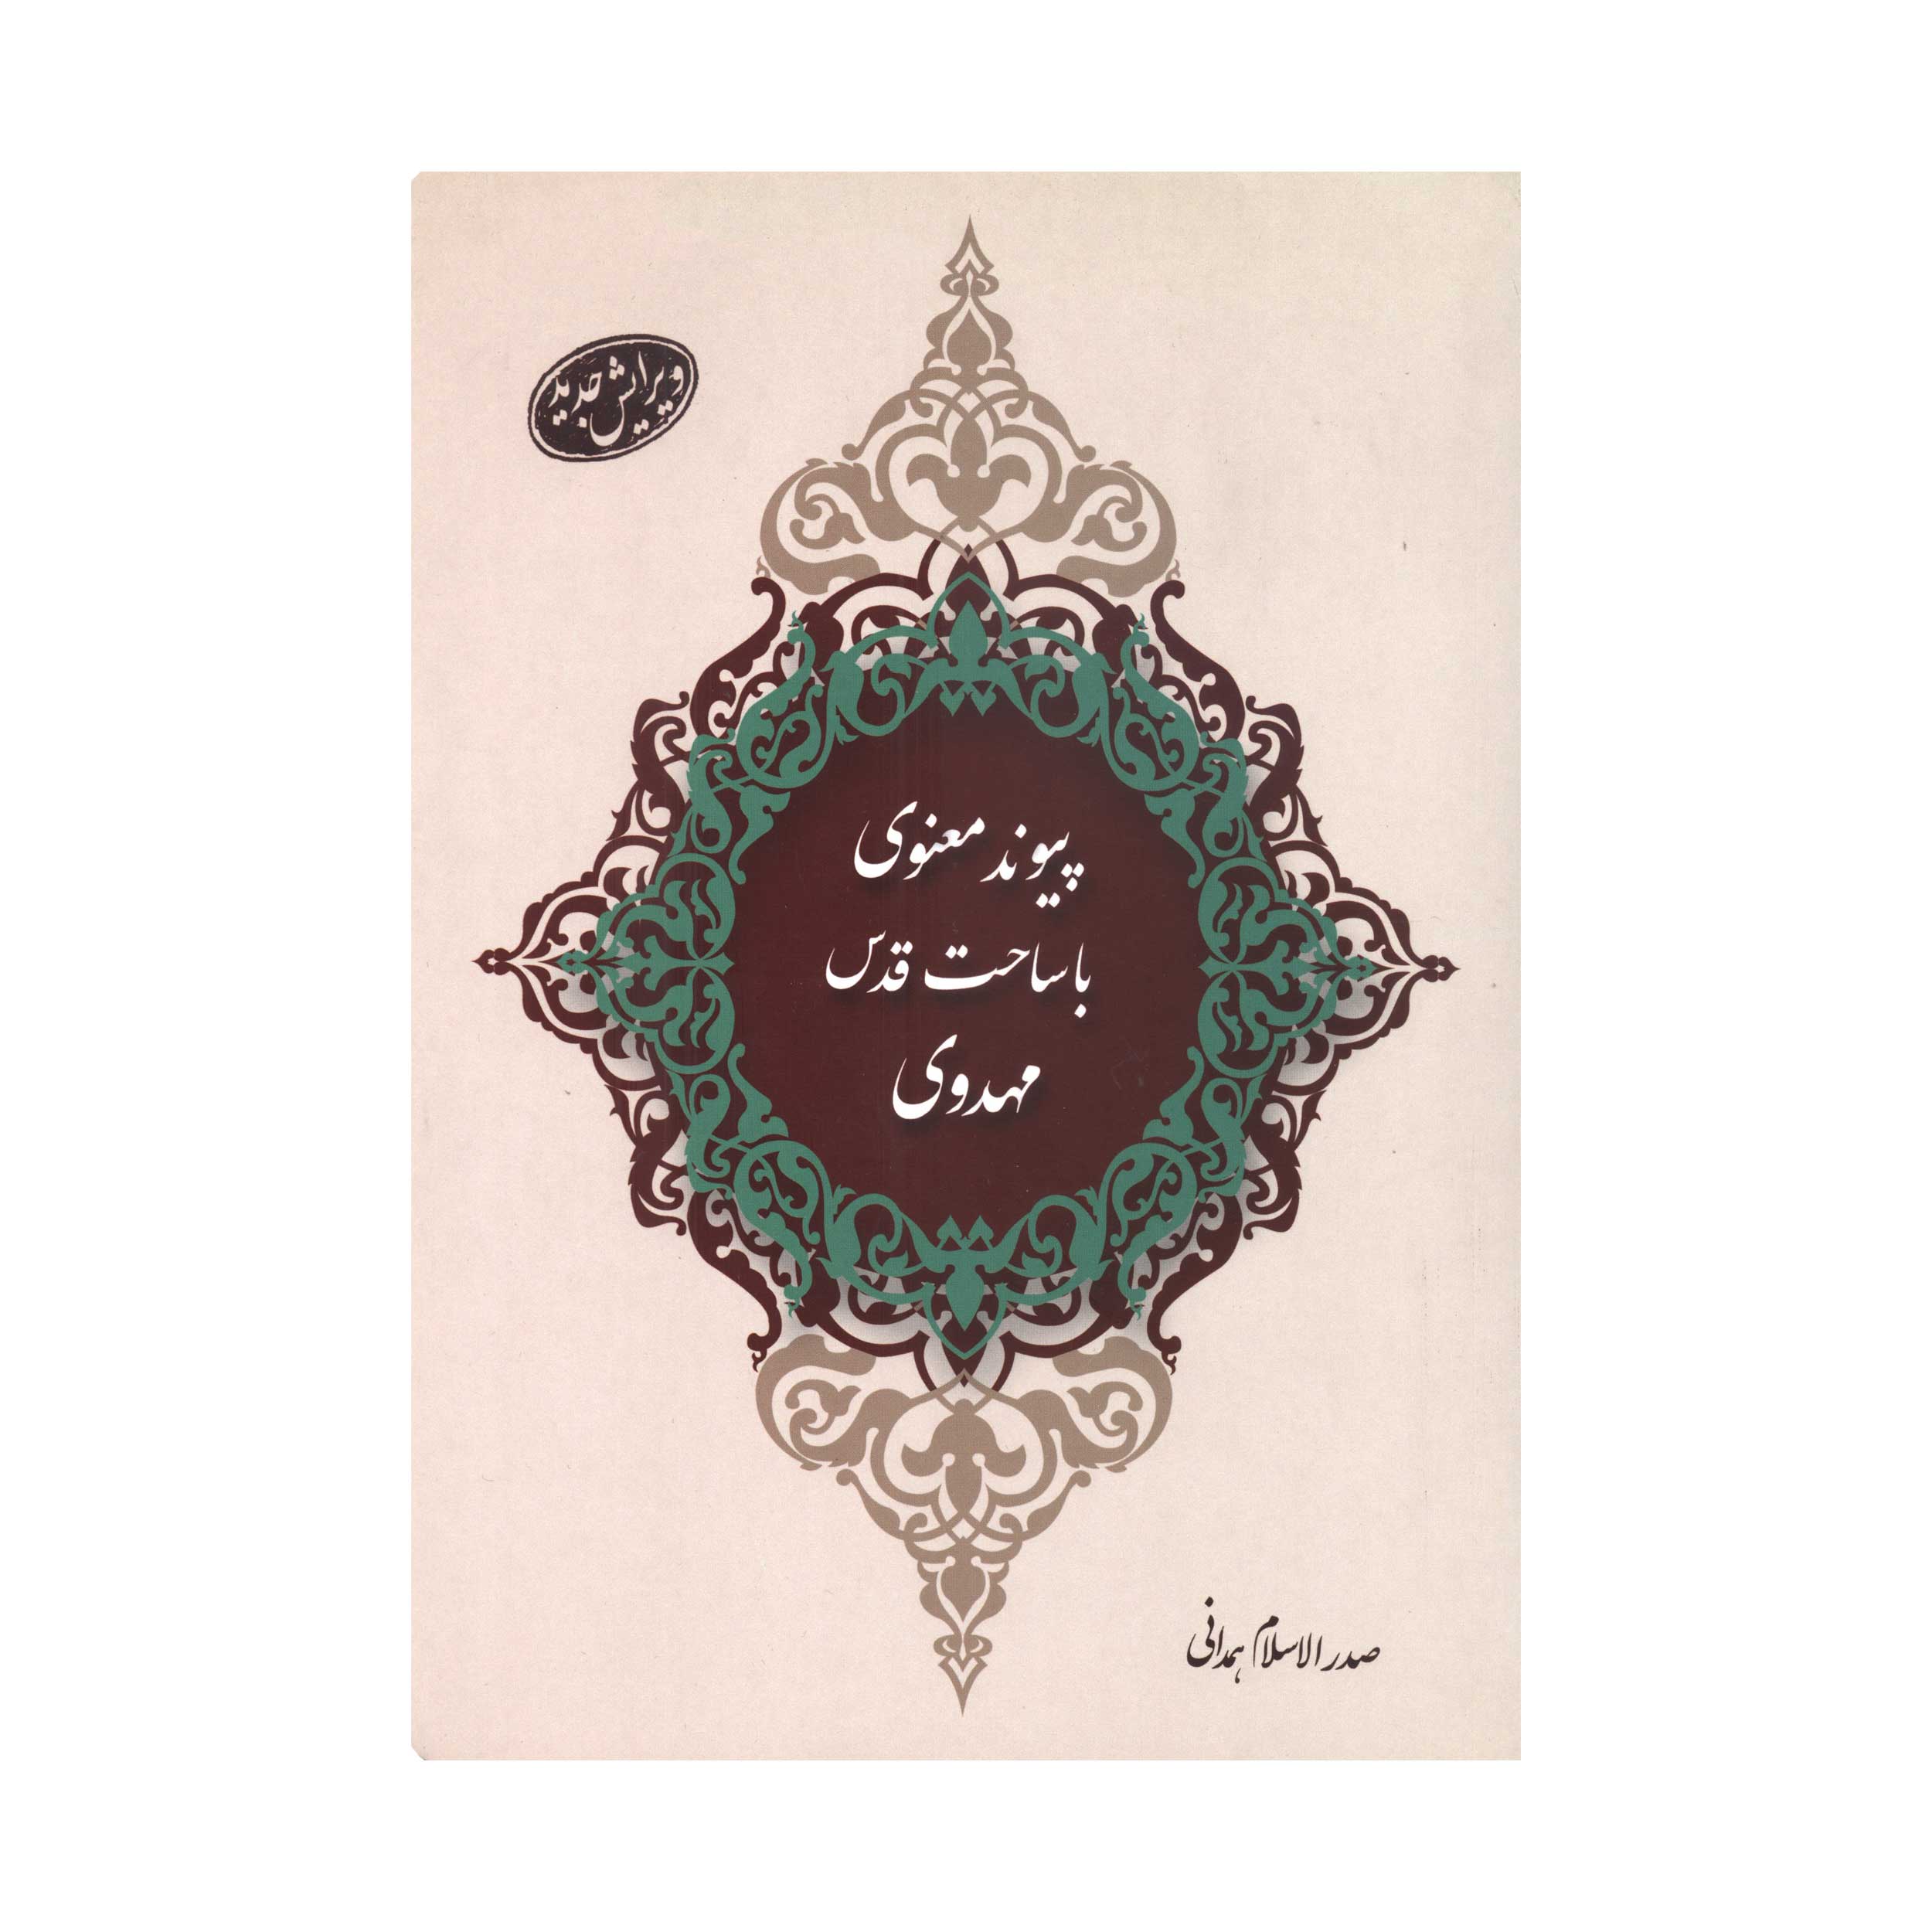 ویرایش جدید
پیوند معنوی
با ساحت قدس
مهدوی
صدر الاسلام همدانی